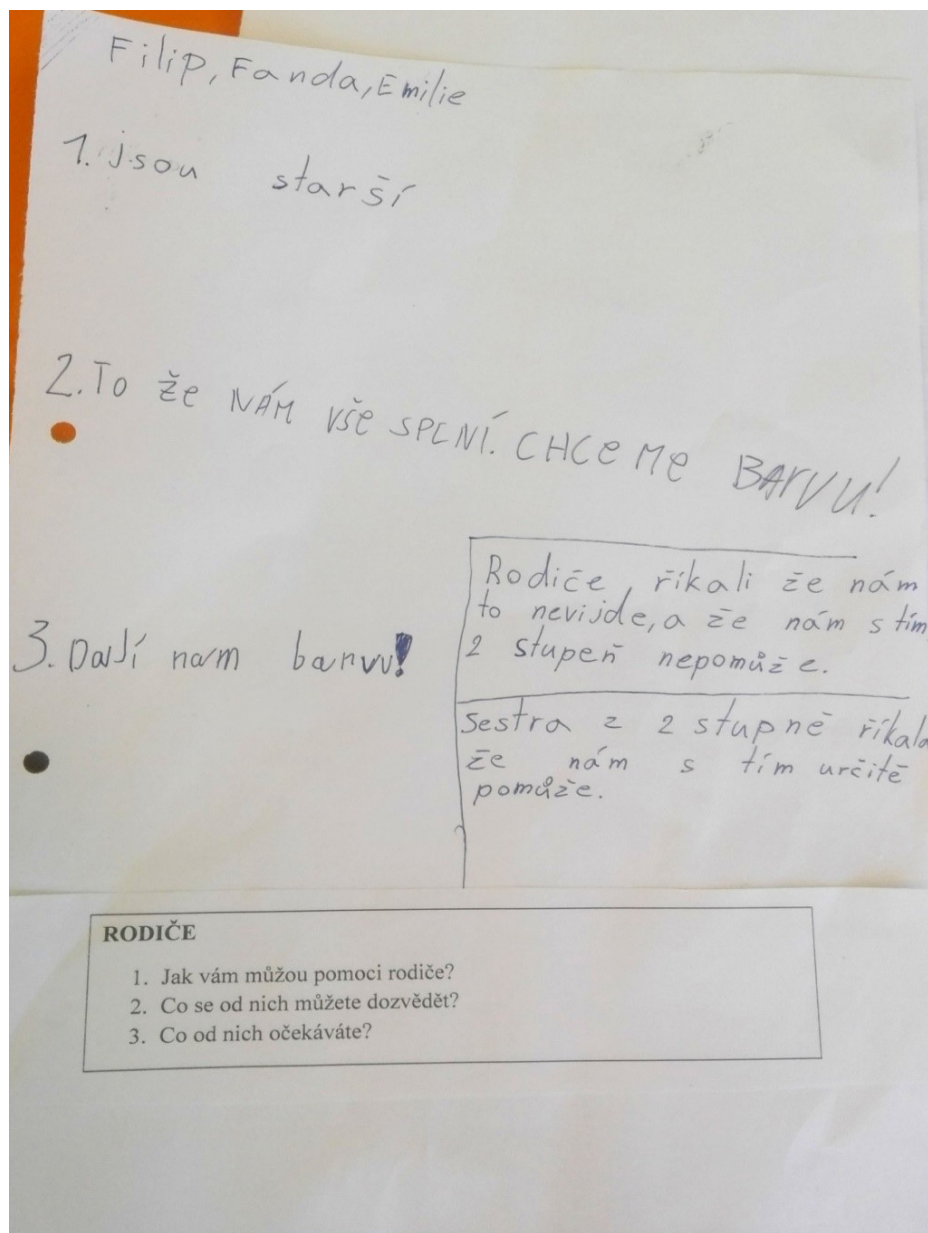 Filip, Fanda, Emilie
1. jsou starší
2. To že NÁM vše SPLNÍ. CHCeMe BArVU!
3. Dají nam barvu!
Rodiče říkali že nám
to nevijde, a že nám s tím
2 stupeň nepomůže.
Sestra z 2 stupně říkala
že nám s tím určitě
pomůže.
RODIČE
1. Jak vám můžou pomoci rodiče?
2. Co se od nich můžete dozvědět?
3. Co od nich očekáváte?